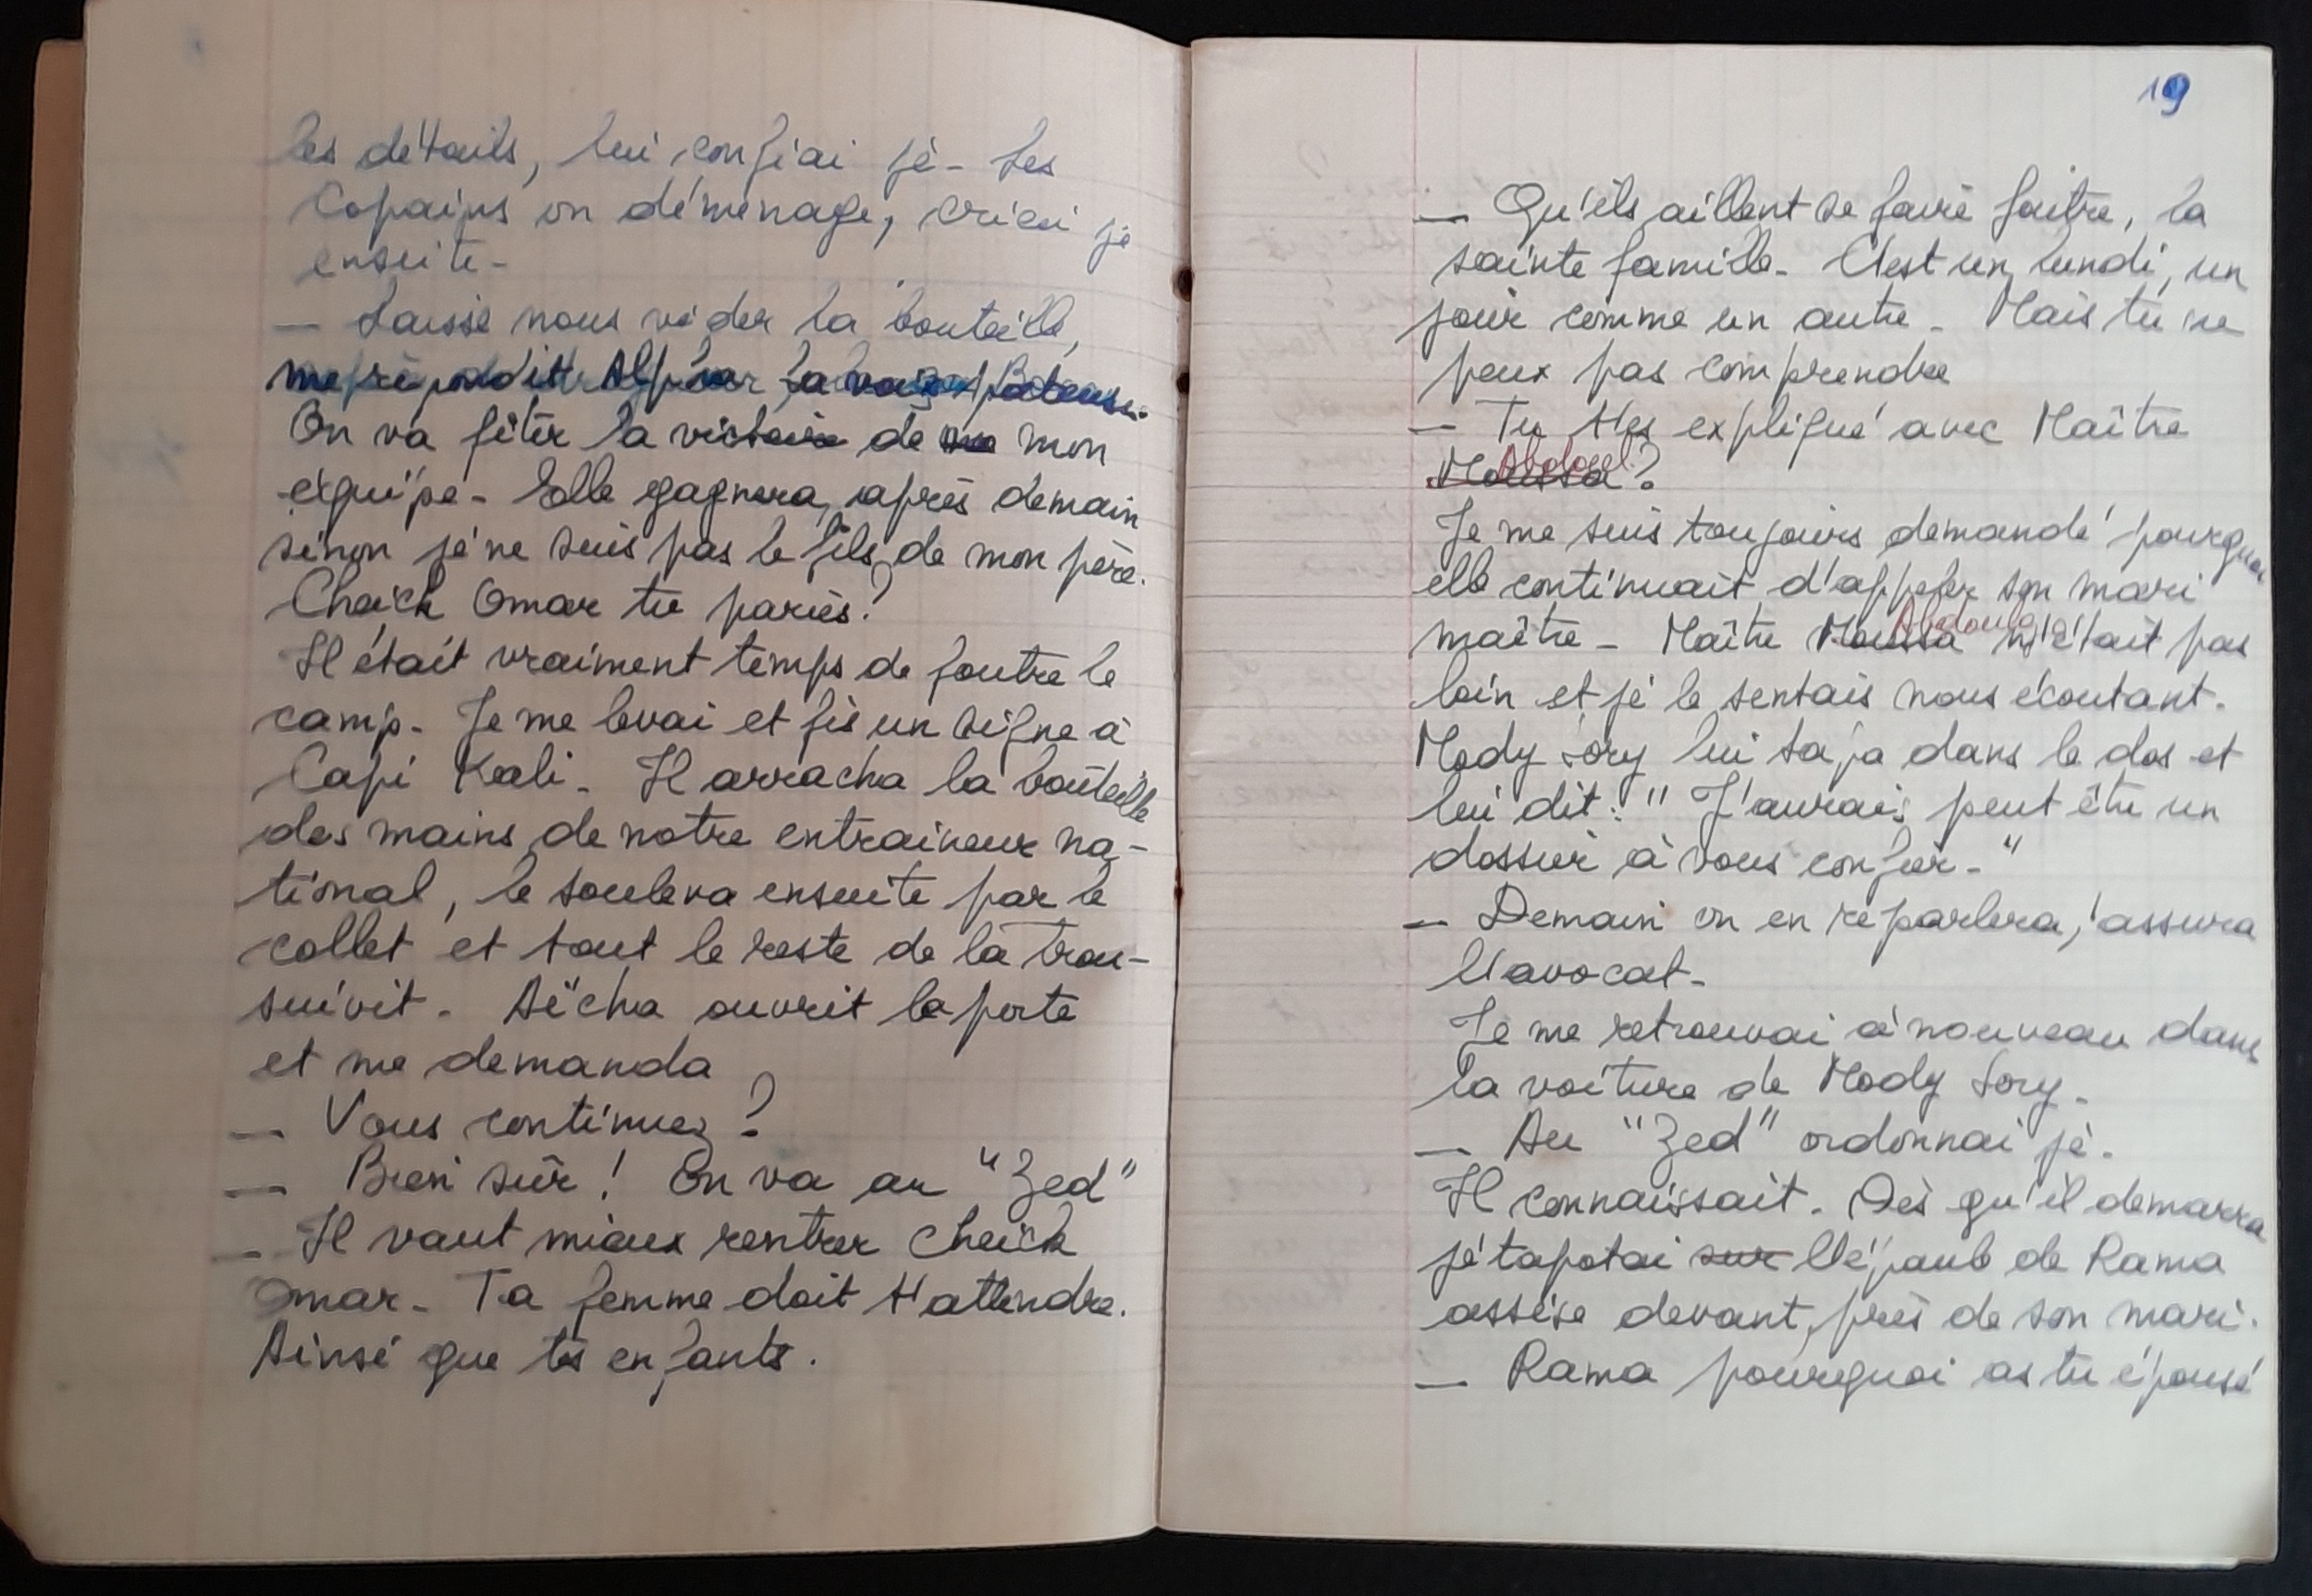 les détails, lui confiai je. Les
Copains on déménage, criai je
ensuite.
— Laisse nous vider la bouteille,
me répondit Alphar la voix pateuse.
On va fêter la victoire de mon
équipe. Elle gagnera, après demain
sinon je ne suis pas le fils de mon père.
Cheick Omar tu paries?
Il était vraiment temps de foutre le
camp. Je me levai et fis un signe à
Capi Kali. Il arracha la bouteille
des mains de notre entraineur na-
tional, le souleva ensuite par le
collet et tout le reste de la trou-
suivit. Aïcha ouvrit la porte
et me demanda
— Vous continuez?
— Bien sûr! On va au "Zed"
— Il vaut mieux rentrer Cheick
Omar. Ta femme doit t'attendre.
Ainsi que tes enfants.
19
— Qu'ils aillent se faire foutre, la
sainte famille. C'est un lundi, un
jour comme un autre. Mais tu ne
peux pas comprendre
— Tu t'es expliqué avec Maître
Moussa Abdoul?
Je me suis toujours demandé pourquoi
elle continuait d'appeler son mari
maître. Maître Moussa Abdoul n'était pas
loin et je le sentais nous écoutant.
Mody Sory lui tapa dans le dos et
lui dit: "J'aurais peut être un
dossier à vous confier."
— Demain on en reparlera, assura
l'avocat.
Je me retrouvai à nouveau dans
la voiture de Mody Sory.
— Au "Zed" ordonnai je.
Il connaissait. Dès qu'il demarra
je tapotai sur l'épaule de Rama
assise devant, près de son mari.
— Rama pourquoi as tu épousé